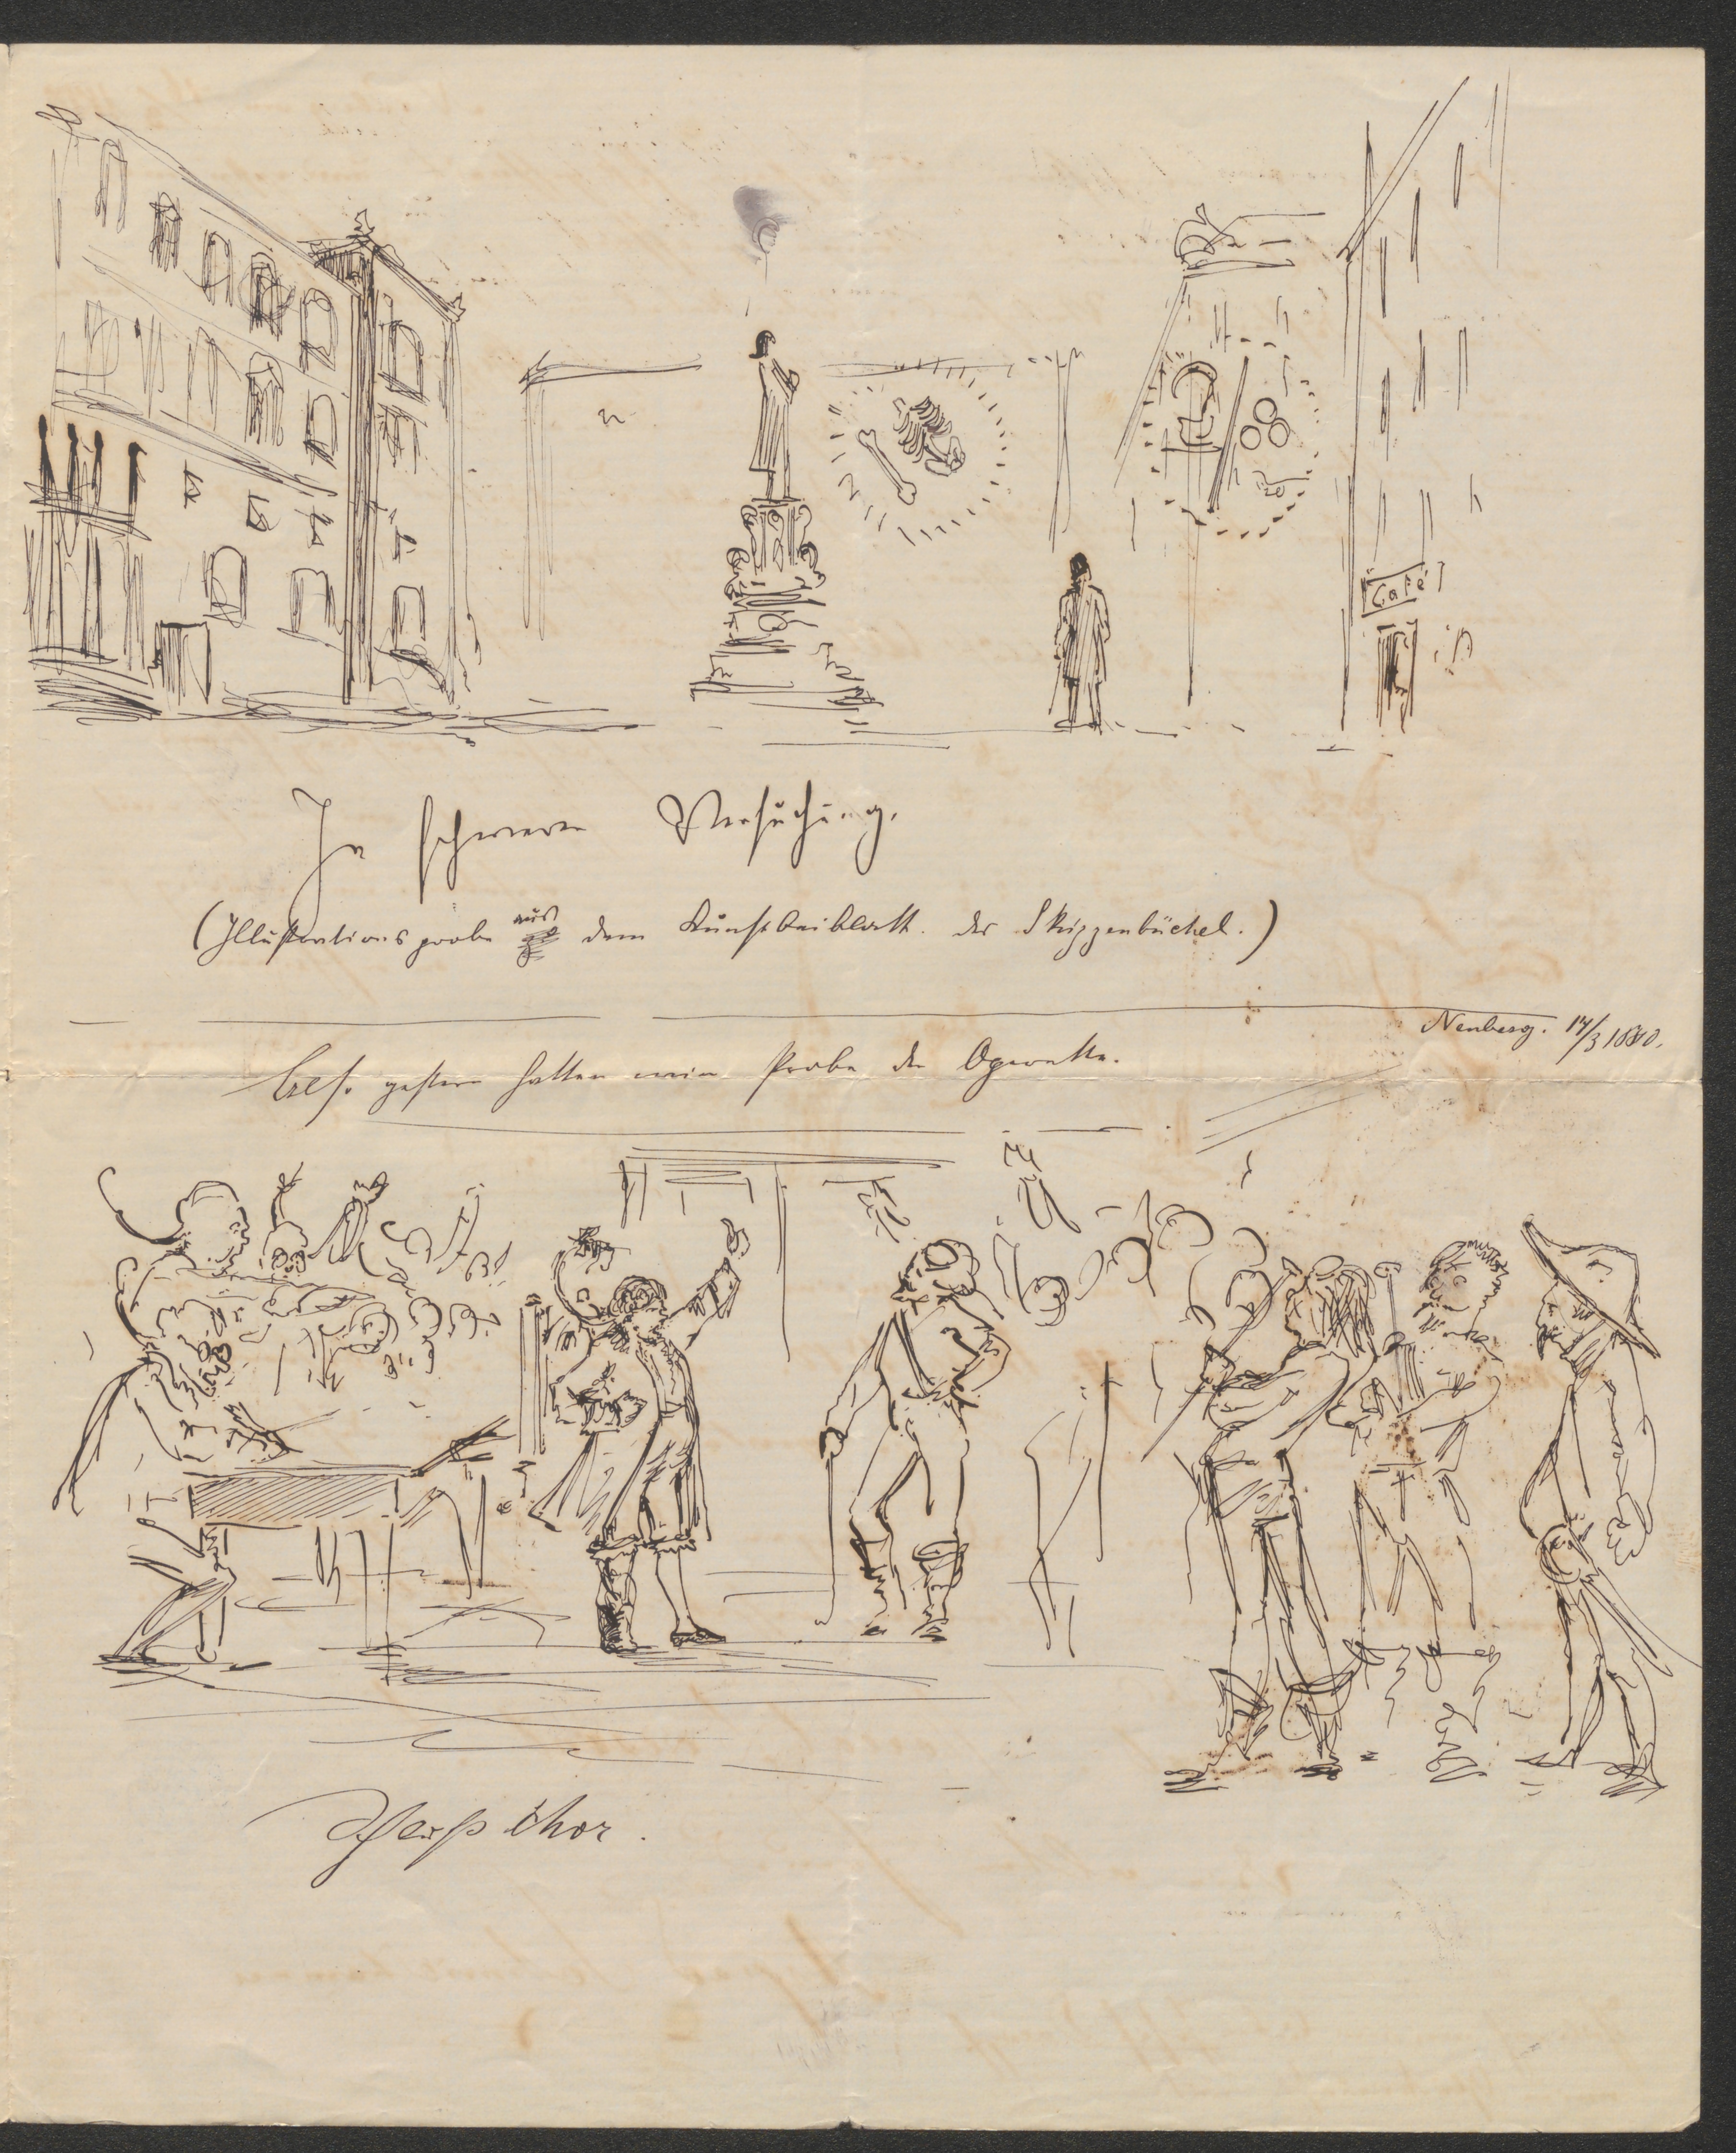 Café
In schwerer Versuchung.
(Illustrationsprobe aus dem Kunstbeiblatt der Skizzenbüchel.)
Nenberg. 14/3 1880.
gestern hatten wir Probe der Operette.
chor.